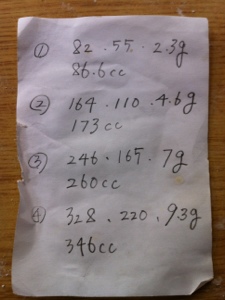 ① 82 . 55 . 2.3g
86.6cc
② 164 . 110 . 4.6g
173cc
③ 246 . 165 . 7g
260cc
④ 328 . 220 . 9.3g
346cc